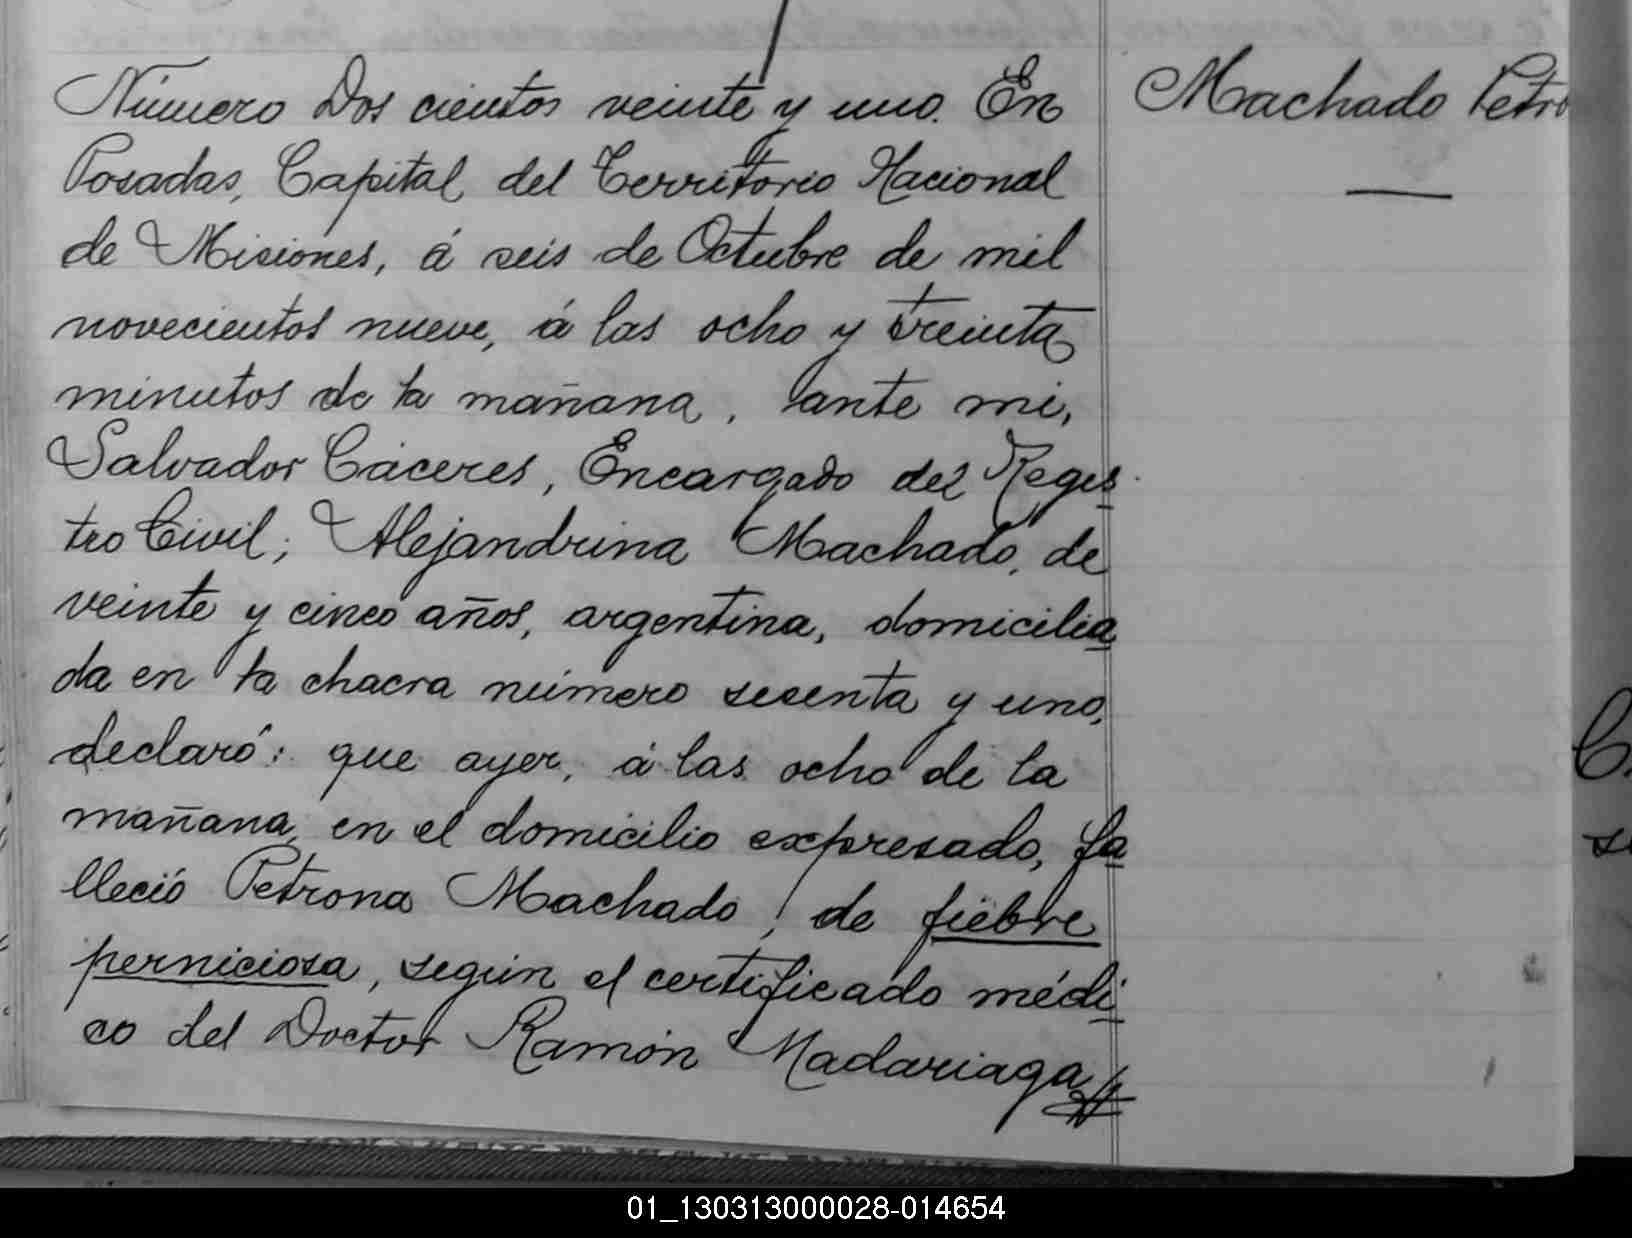 Número Dos cientos veinte y uno. En
Machado Petro
Posadas, Capital del Territorio Nacional
de Misiones, á seis de Octubre de mil
novecientos nueve, á las ocho y treinta
minutos de la mañana, ante mi,
Salvador Cáceres, Encargado del Regis
tro Civil; Alejandrina Machado, de
veinte y cinco años, argentina, domicilia
da en la chacra número sesenta y uno,
declaró: que ayer, á las ocho de la
mañana, en el domicilio expresado, fa
lleció Petrona Machado, de fiebre
perniciosa, según el certificado médi
co del Doctor Ramón Madariaga
01_130313000028-014654